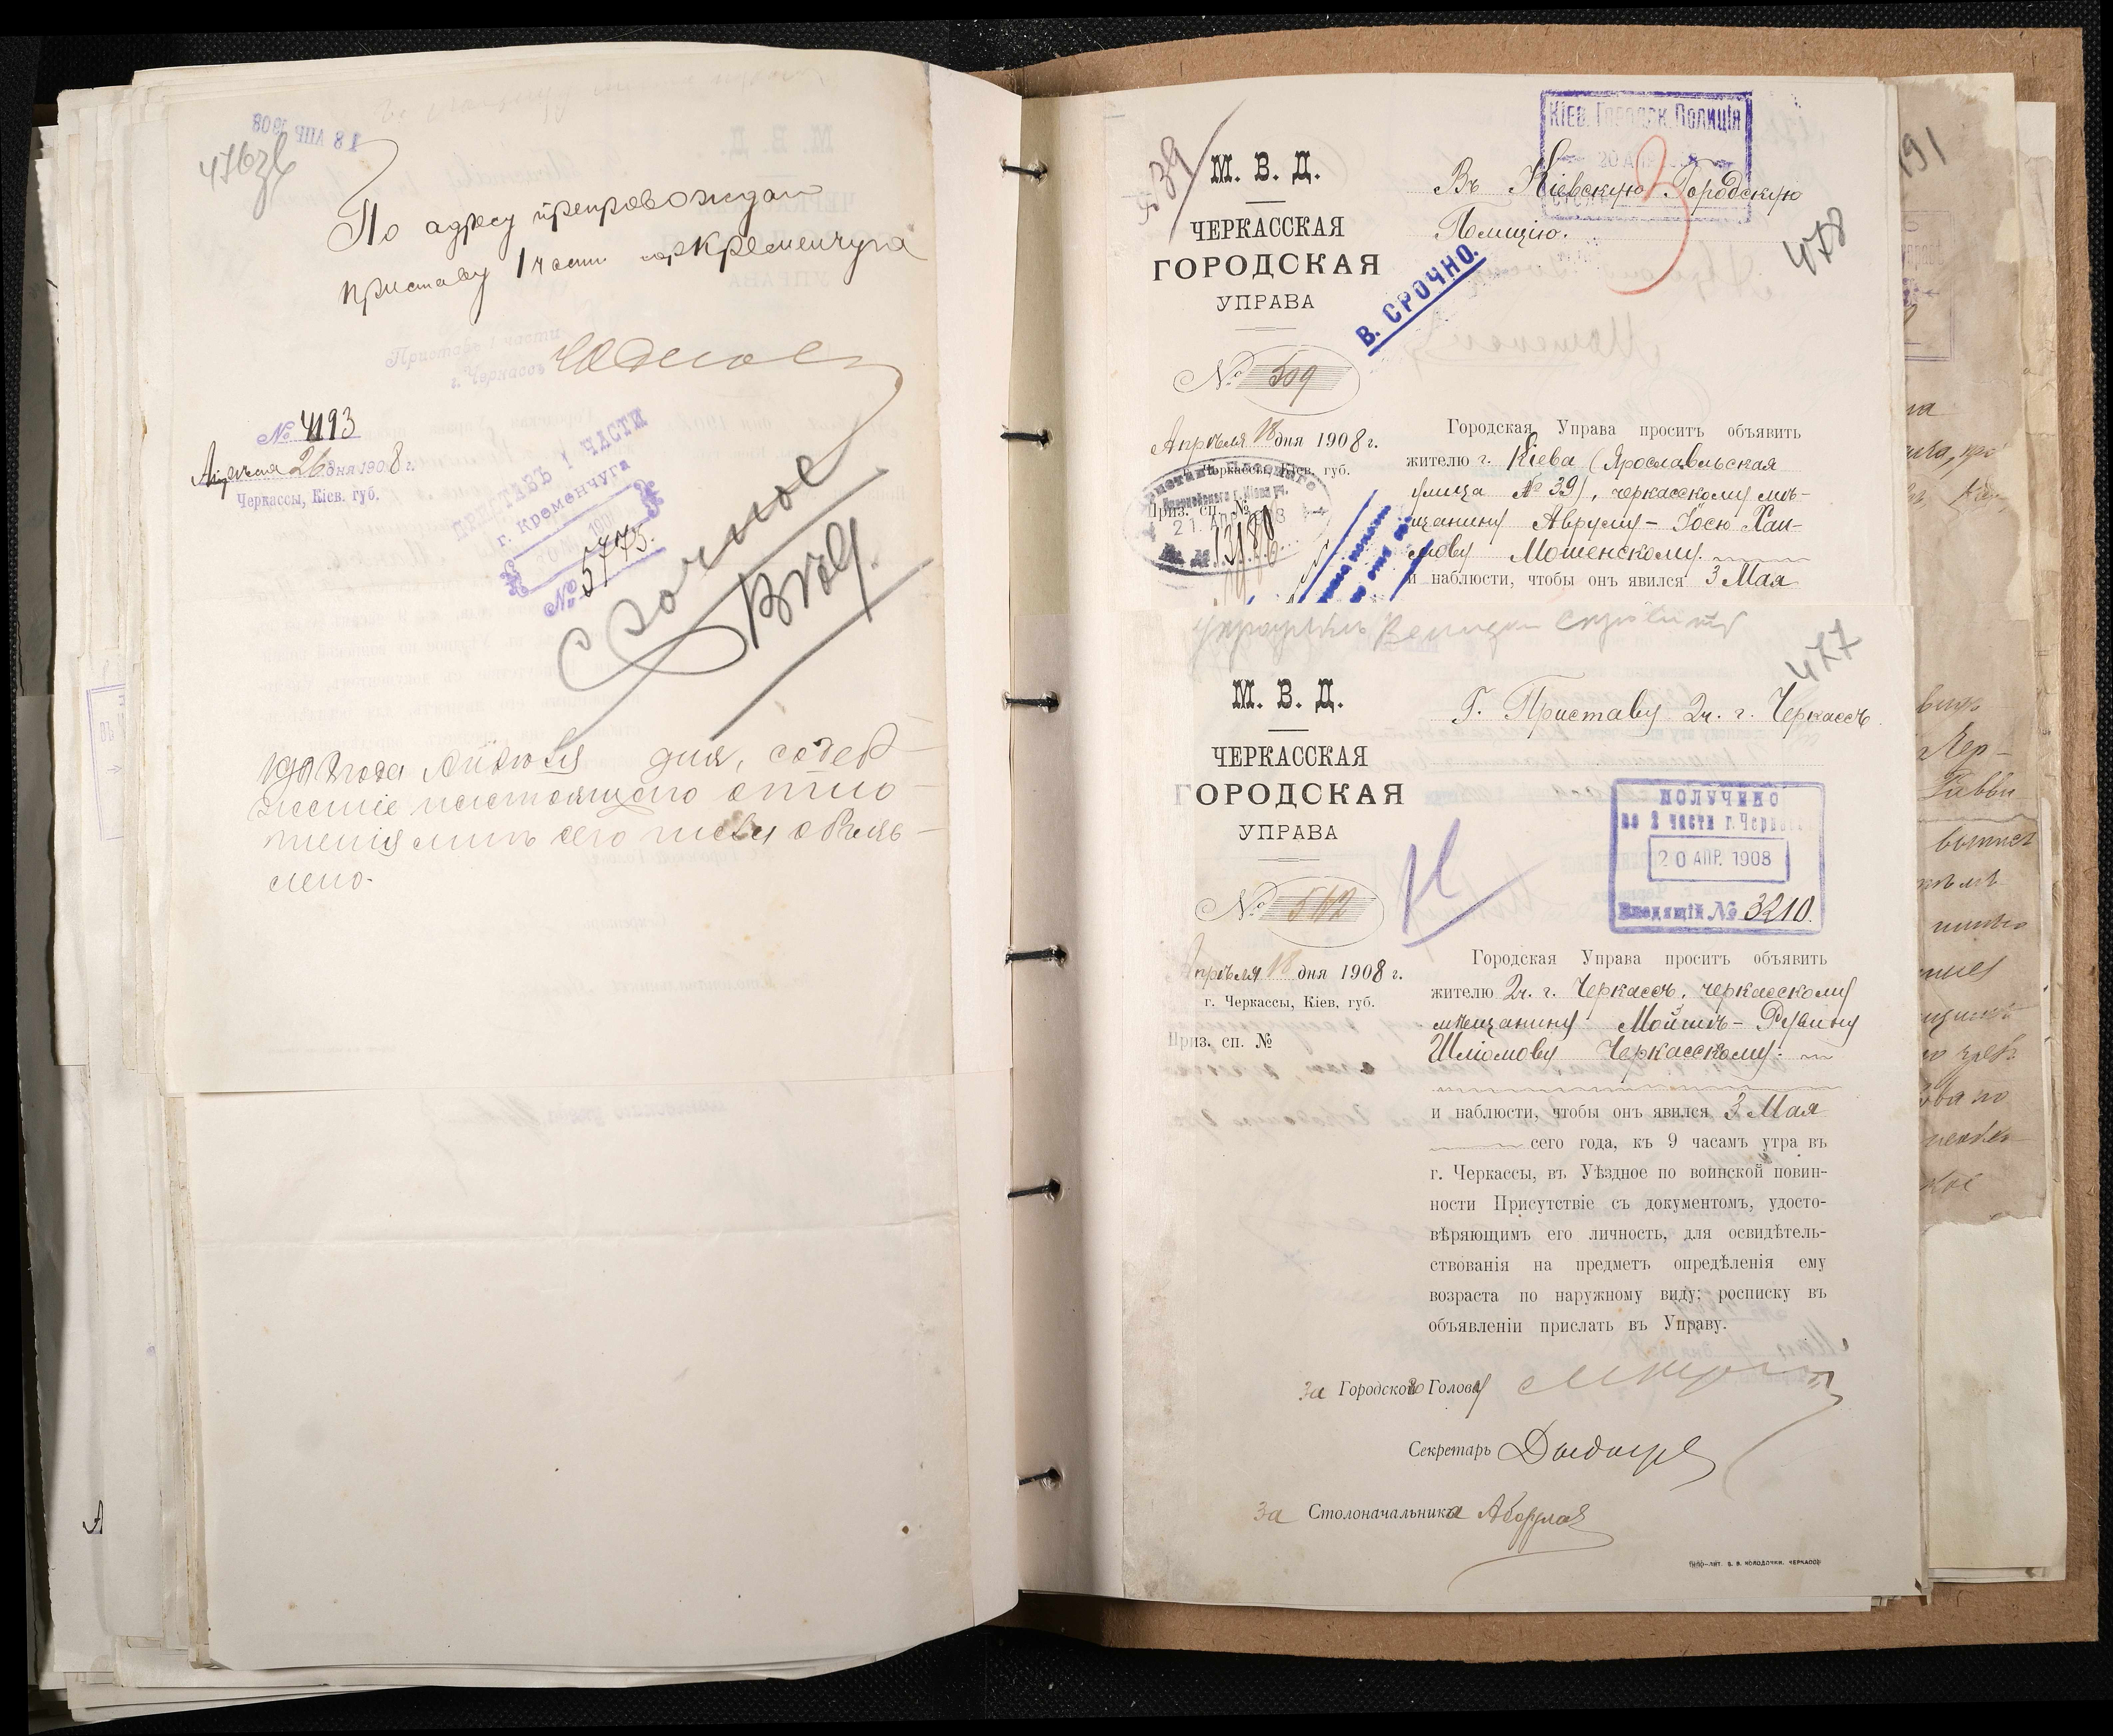 476 зв
18 АПР 1908
По адресу препровождаю
приставу 1 части гор Кременчуга
Приставъ 1 части
г. Черкассъ
№ 4193
Апреля 26 дня 1908 г.
Черкассы, Кіев. губ.
ПРИСТАВЪ 1 ЧАСТИ
г. Кременчуга
№ 5775.
Срочное
1908 года дня, содер
жаніе настоящаго отно-
шенія мнѣ сего числа объяв-
лено.
39
М. В. Д.
ЧЕРКАССКАЯ
ГОРОДСКАЯ
УПРАВА
№ 509
Апрѣля 18 дня 1908 г.
г. Черкассы, Кіев. губ.
Приз. сп. №
21. АПР 1908
13180
Кіев. Городск. Полиція
20 АПР
Въ Кіевскую Городскую
Полицію.
478
В. СРОЧНО.
Городская Управа проситъ объявить
жителю г. Кіева (Ярославльская
улица № 39), черкасскому мѣ-
щанину Аврумy-Іосю Хаи-
мову Мошенскому.
и наблюсти, чтобы онъ явился 3 Мая
477
М. В. Д.
ЧЕРКАССКАЯ
ГОРОДСКАЯ
УПРАВА
№ 512
Апрѣля 18 дня 1908 г.
г. Черкассы, Кіев. губ.
Приз. сп. №
Г. Приставу 2ч. г. Черкассъ
ПОЛУЧЕНО
во 2 части г. Черкассъ
20 АПР. 1908
Входящій № 3210.
Городская Управа проситъ объявить
жителю 2ч. г. Черкассъ, черкасскому
мѣщанину Мойшѣ-Рувину
Шліомову Черкасскому:
и наблюсти, чтобы онъ явился 3 Мая
сего года, къ 9 часамъ утра въ
г. Черкассы, въ Уѣздное по воинской повин-
ности Присутствіе съ документомъ, удосто-
вѣряющимъ его личность, для освидѣтель-
ствованія на предметъ опредѣленія ему
возраста по наружному виду; росписку въ
объявленіи прислать въ Управу.
За Городского Голову
Секретарь
За Столоначальника
Типо-лит. В. В. Колодочки, Черкассы
191